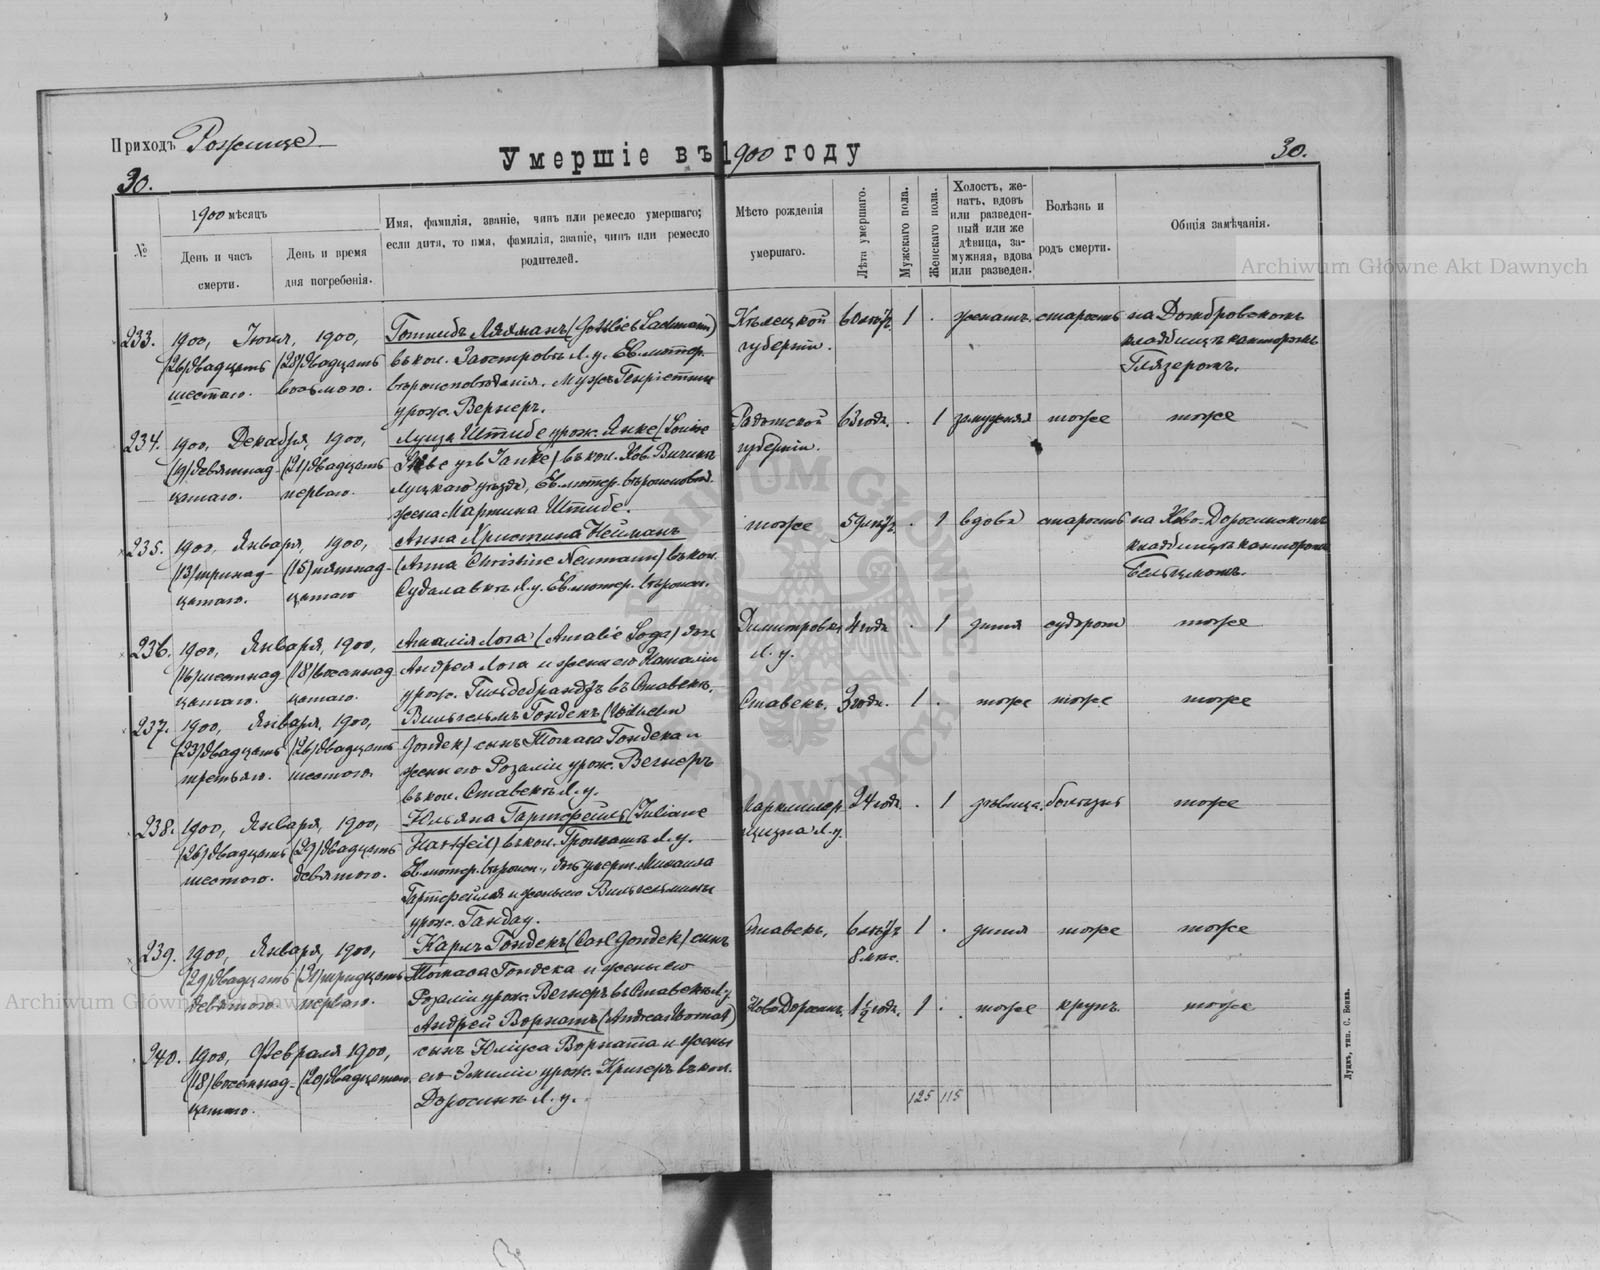 Приходъ Рожище
Умершіе въ 1900 году
30.
30.
№
1900 мѣсяцъ
День и часъ
смерти.
День и время
дня погребенія.
Имя, фамилія, званіе, чинъ или ремесло умершаго;
если дитя, то имя, фамилія, званіе, чинъ или ремесло
родителей.
Мѣсто рожденія
умершаго.
Лѣта умершаго.
Мужскаго пола.
Женскаго пола.
Холостъ, же-
натъ, вдовъ
или разведен-
ный или же
дѣвица, за-
мужняя, вдова
или разведен.
Болѣзнь и
родъ смерти.
Общія замѣчанія.
Archiwum Główne Akt Dawnych
233. 1900, Іюля, 1900,
(26) двадцать (28) двадцать
шестаго. восьмого.
Готлибъ Ляхманъ (Gottlieb Lachmann)
въ кол. Заостровъ Л. у. Ев. лютер.
вѣроисповѣданія. Мужъ Генріетты
урож. Вернеръ.
Кѣлецкой 60 лѣтъ 1 . женатъ. старость на Домбровскомъ
губерніи. кладбищѣ канторомъ
Глязеромъ.
234. 1900, Декабря, 1900,
(19) девятнад- (21) двадцать
цатаго. перваго.
Луиза Штибе урож. Янке (Louise
Stiebe geb Janke) въ кол.
Луцкаго уѣзда, Ев. лютер. вѣроисповѣд.
жена Мартина Штибе.
Радомской 63 года. . 1 замужняя тоже тоже
губерніи.
235. 1900, Января, 1900,
(13) тринад- (15) пятнад-
цатаго. цатаго
Анна Христина Нейманъ
(Anna Christine Neumann) въ кол.
Л. у. Ев. лютер. вѣроисп.
тоже 59 лѣтъ . 1 вдова старость на Ново-Доросинскомъ
кладбищѣ канторомъ
236. 1900, Января, 1900,
(16) шестнад- (18) восемнад-
цатаго. цатаго.
Амалія Лога (Amalie Loga) дочь
Андрея Лога и жены его Наталіи
урож. Гильдебрандтъ въ Ставекъ.
Димитровка 4 года . 1 дитя судороги тоже
Л. у.
237. 1900, Января, 1900,
(23) двадцать (26) двадцать
третьяго. шестого.
Вильгельмъ Гондекъ (Wilhelm
Gondek) сынъ Томаса Гондека и
жены его Розаліи урож. Вегнеръ
въ кол. Ставекъ Л. у.
Ставекъ, 3 года. 1 . тоже тоже тоже
238. 1900, Января, 1900,
(26) двадцать (29) двадцать
шестого. девятого.
Юльяна Гартфейль (Juliane
Hartfeil) въ кол. Громашъ Л. у.
Ев. лютер. вѣроисп., дочь умерш. Михаила
Гартфейля и жены его Вильгельмины
урож. Гандау.
24 года . 1 дѣвица. болѣзнь тоже
Л. у.
239. 1900, Января, 1900,
(29) двадцать (31) тридцать
девятого. перваго.
Карлъ Гондекъ (Carl Gondek) сынъ
Томаса Гондека и жены его
Розаліи урож. Вегнеръ въ Ставекъ Л. у.
Ставекъ, 6 лѣтъ 1 . дитя тоже тоже
8 мѣс.
240. 1900, Февраля 1900,
(18) восемнад- (20) двадцатаго.
цатаго.
Андрей Ворнатъ (Andreas Wornat)
сынъ Юліуса Ворната и жены
его Эмиліи урож. Кригеръ въ кол.
Доросинъ Л. у.
Ново Доросинъ. 1½ года. 1 . тоже крупъ. тоже
125 115
Луцкъ, тип. С. Бонка.
Archiwum Główne Akt Dawnych
ARCHIWUM GŁÓWNE AKT DAWNYCH